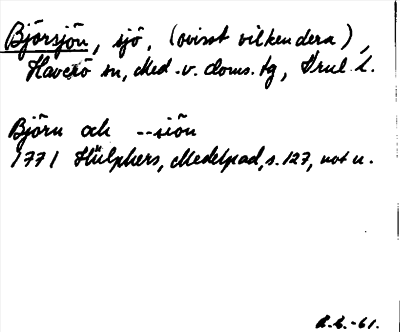 Björsjön, sjö, (ovisst vilkendera),
Haverö sn, Med. v. doms. tg,
Björn och --siön
1771 Hülphers, Medelpad, s. 127, not u.